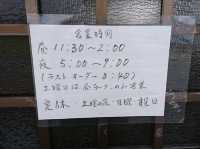 営業時間
昼 11:30～2:00
夜 5:00～9:00
(ラストオーダー 8:40)
土曜日は昼のみ営業
定休 土曜の夜・日曜・祝日